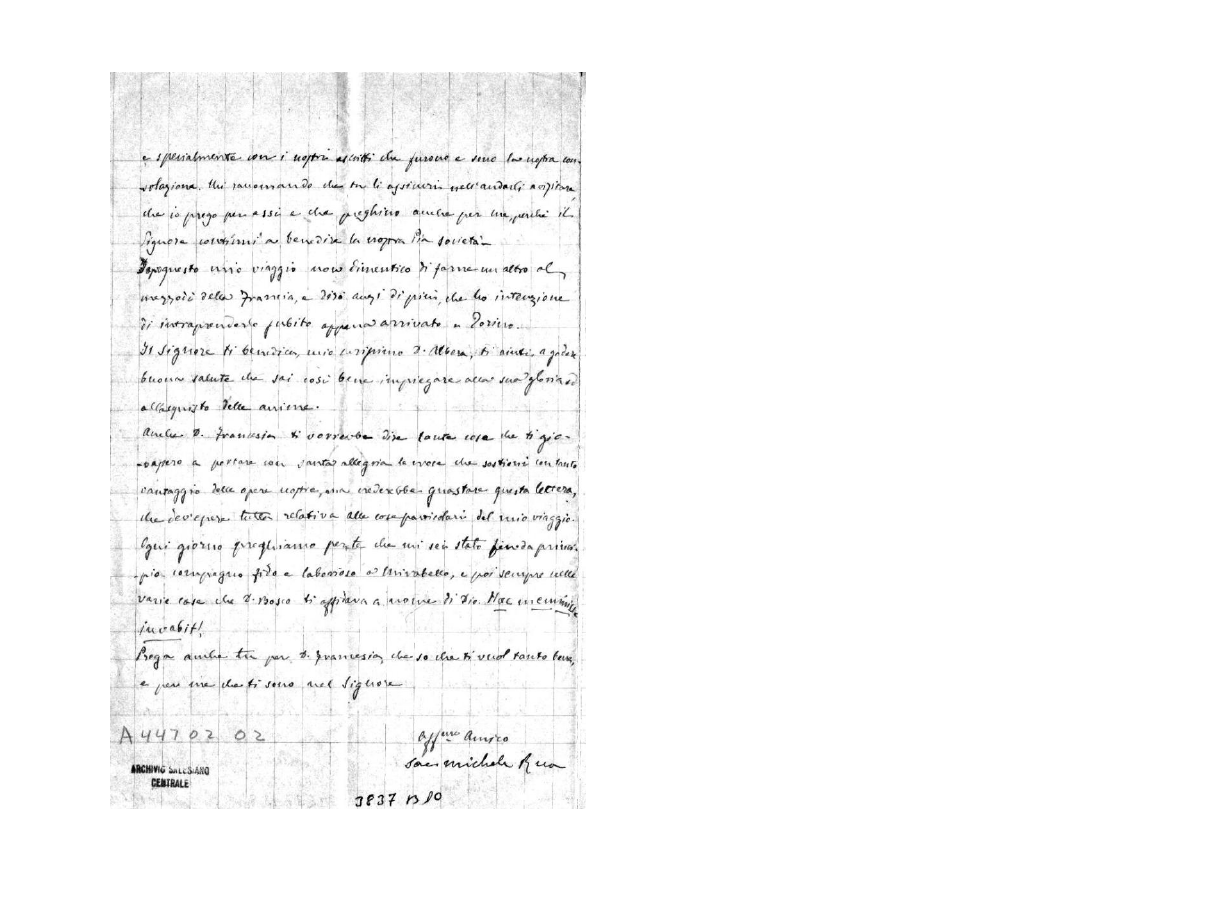 e specialmente con i nostri ascritti che furono e sono la nostra con-
solazione. Mi raccomando che tu li assicuri nell'andarli a visitare,
che io prego per essi e che preghino anche per me, perchè il
Signore continui a benedire la nostra Pia società-
Dopo questo mio viaggio non dimentico di farne un altro al
mezzodì della Francia, e dirò anzi di più, che ho intenzione
di intraprenderlo subito appena arrivato a Torino.
Il Signore ti benedica, mio carissimo D. Albera, ti aiuti, a godere
buona salute che sai così bene impiegare alla sua gloria ed
all'acquisto delle anime.
Anche D. Francesia ti vorrebbe dire tante cose che ti gio-
-vassero a portare con santa allegria la croce che sostieni con tanto
vantaggio delle opere nostre, ma crederebbe guastare questa lettera,
che dev'essere tutta relativa alle cose particolari del mio viaggio.
Ogni giorno preghiamo per te che mi sei stato fin da princi-
-pio compagno fido e laborioso a Mirabello, e poi sempre nelle
varie case che D. Bosco ti affidava a nome di Dio. Haec meminisse
juvabit!
Prega anche tu per D. Francesia, che so che ti vuol tanto bene,
e per me che ti sono nel Signore
Aff.mo Amico
Sac. Michele Rua
A 447 02 02
ARCHIVIO SALESIANO
CENTRALE
3837 B10